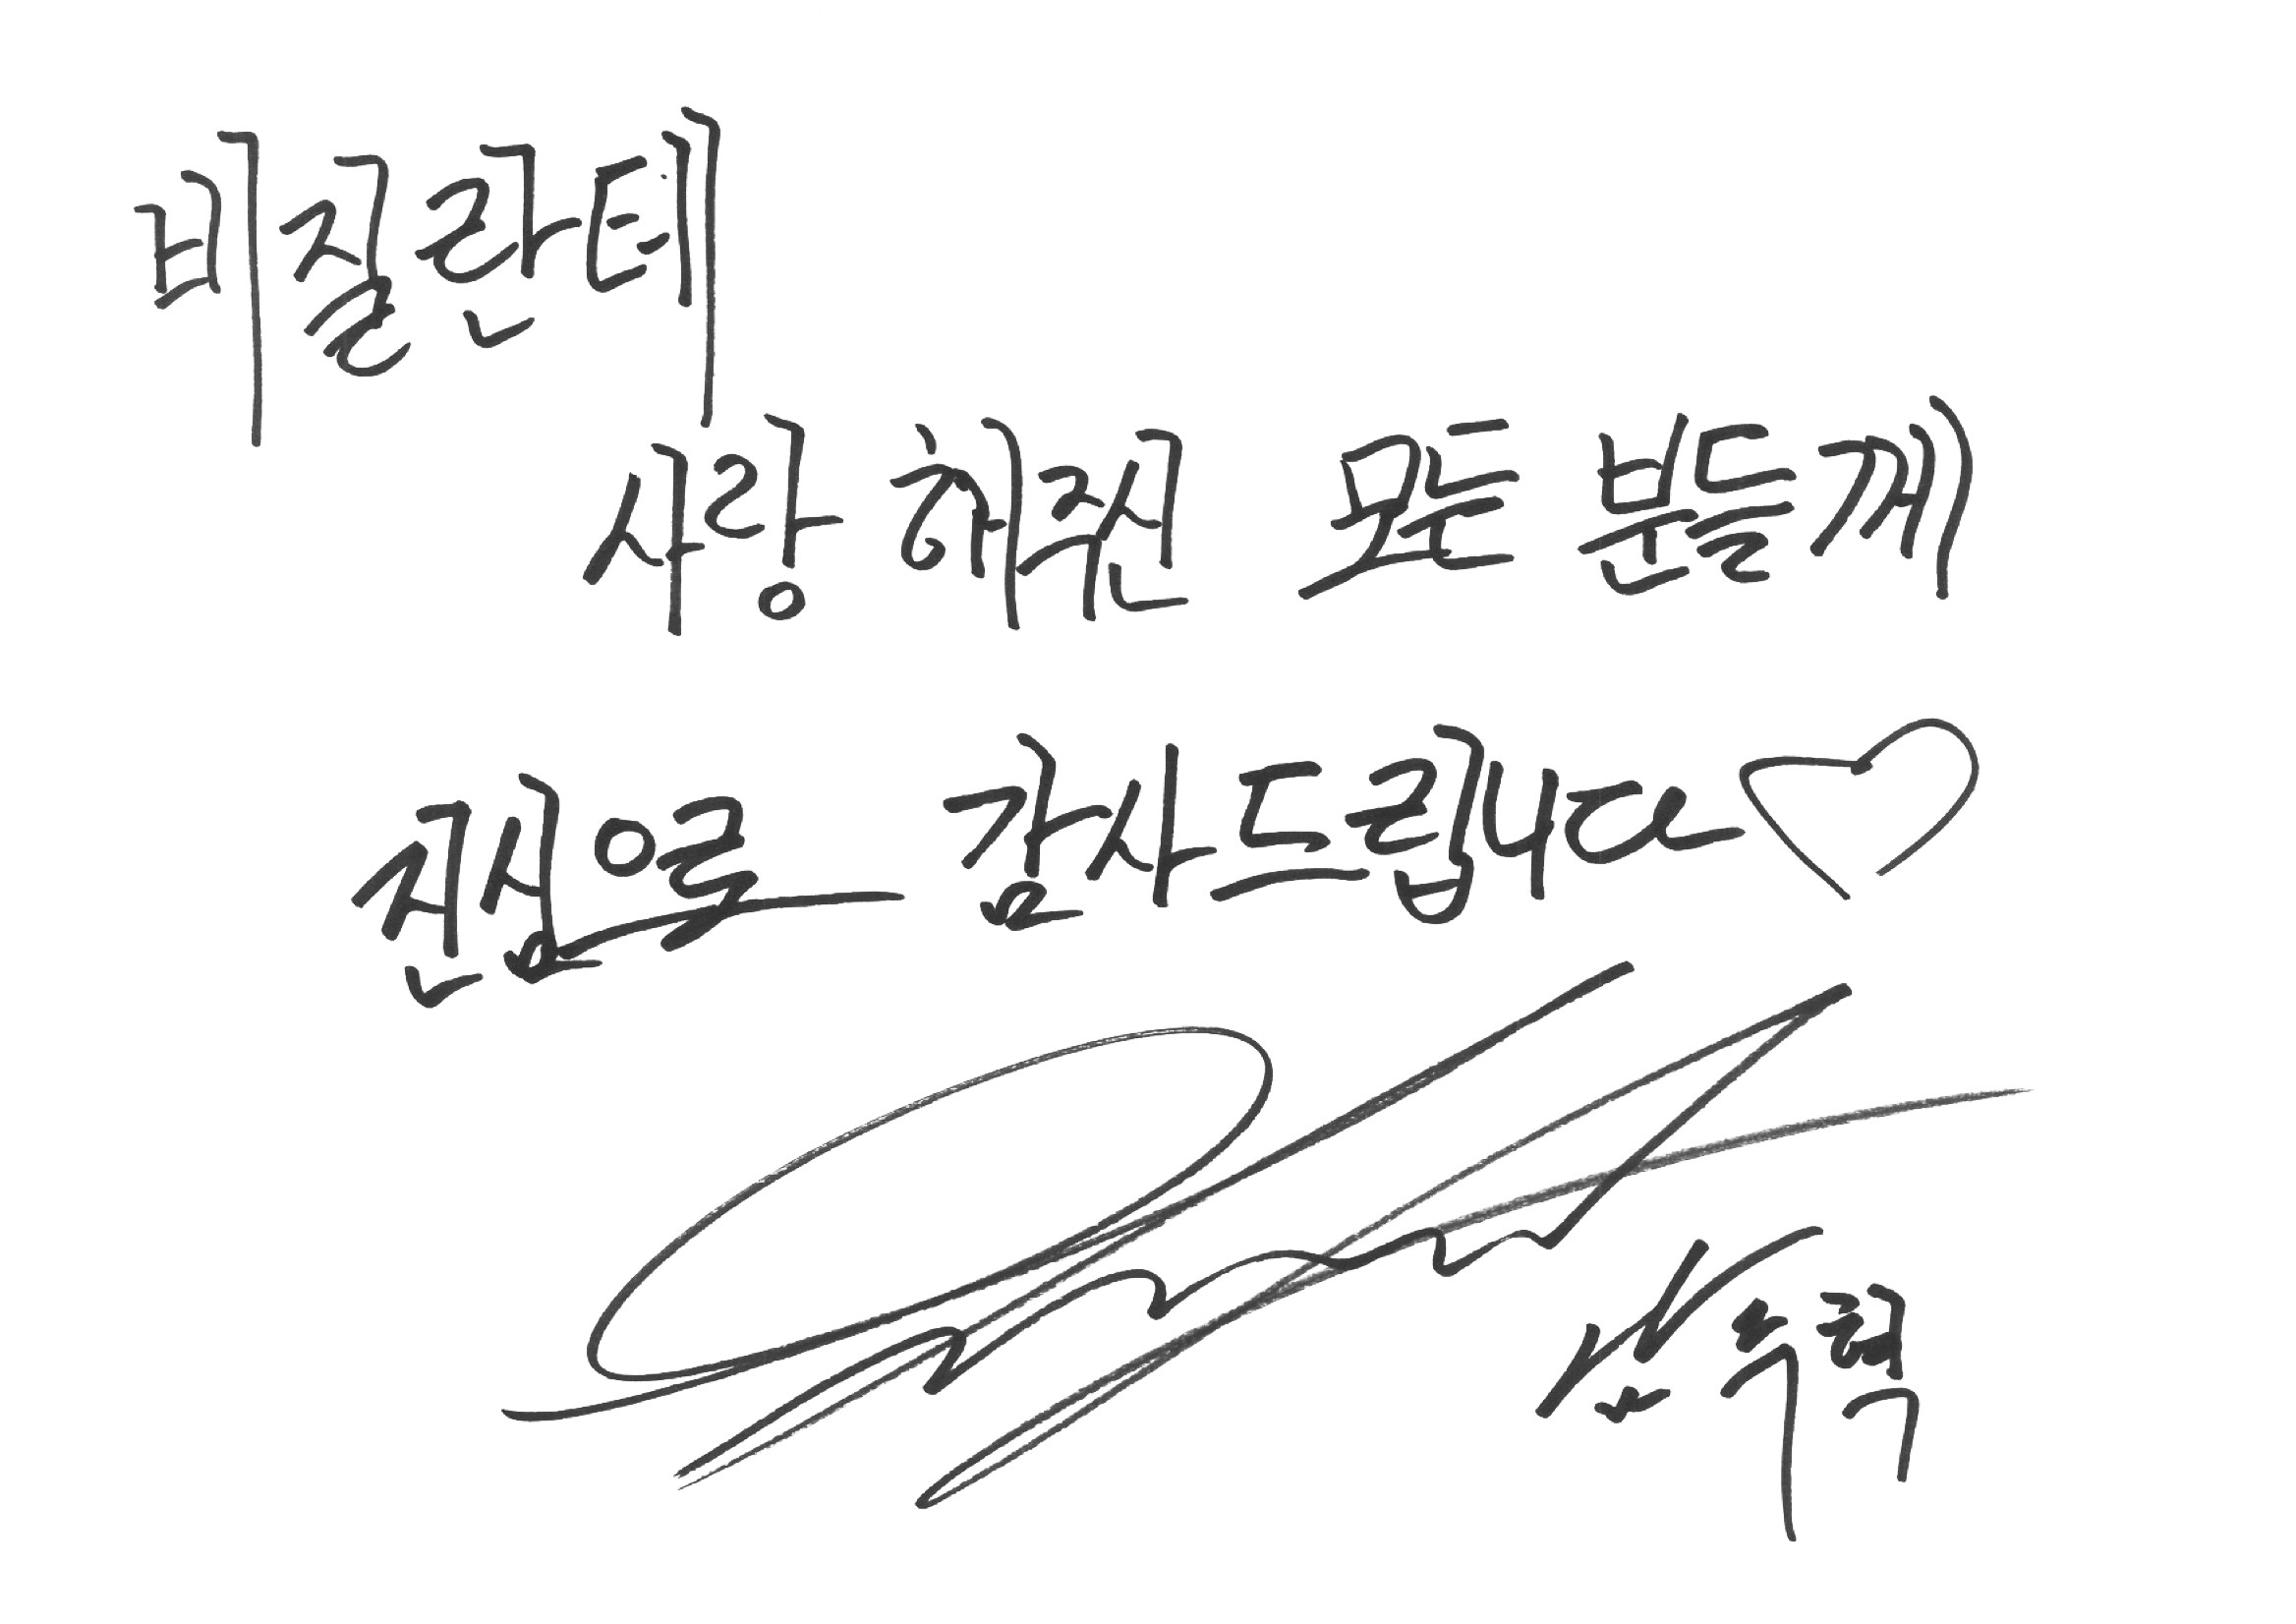 비질란테
사랑 해줜 모든 분들께
진심으로 감사드립니다♡
남주혁